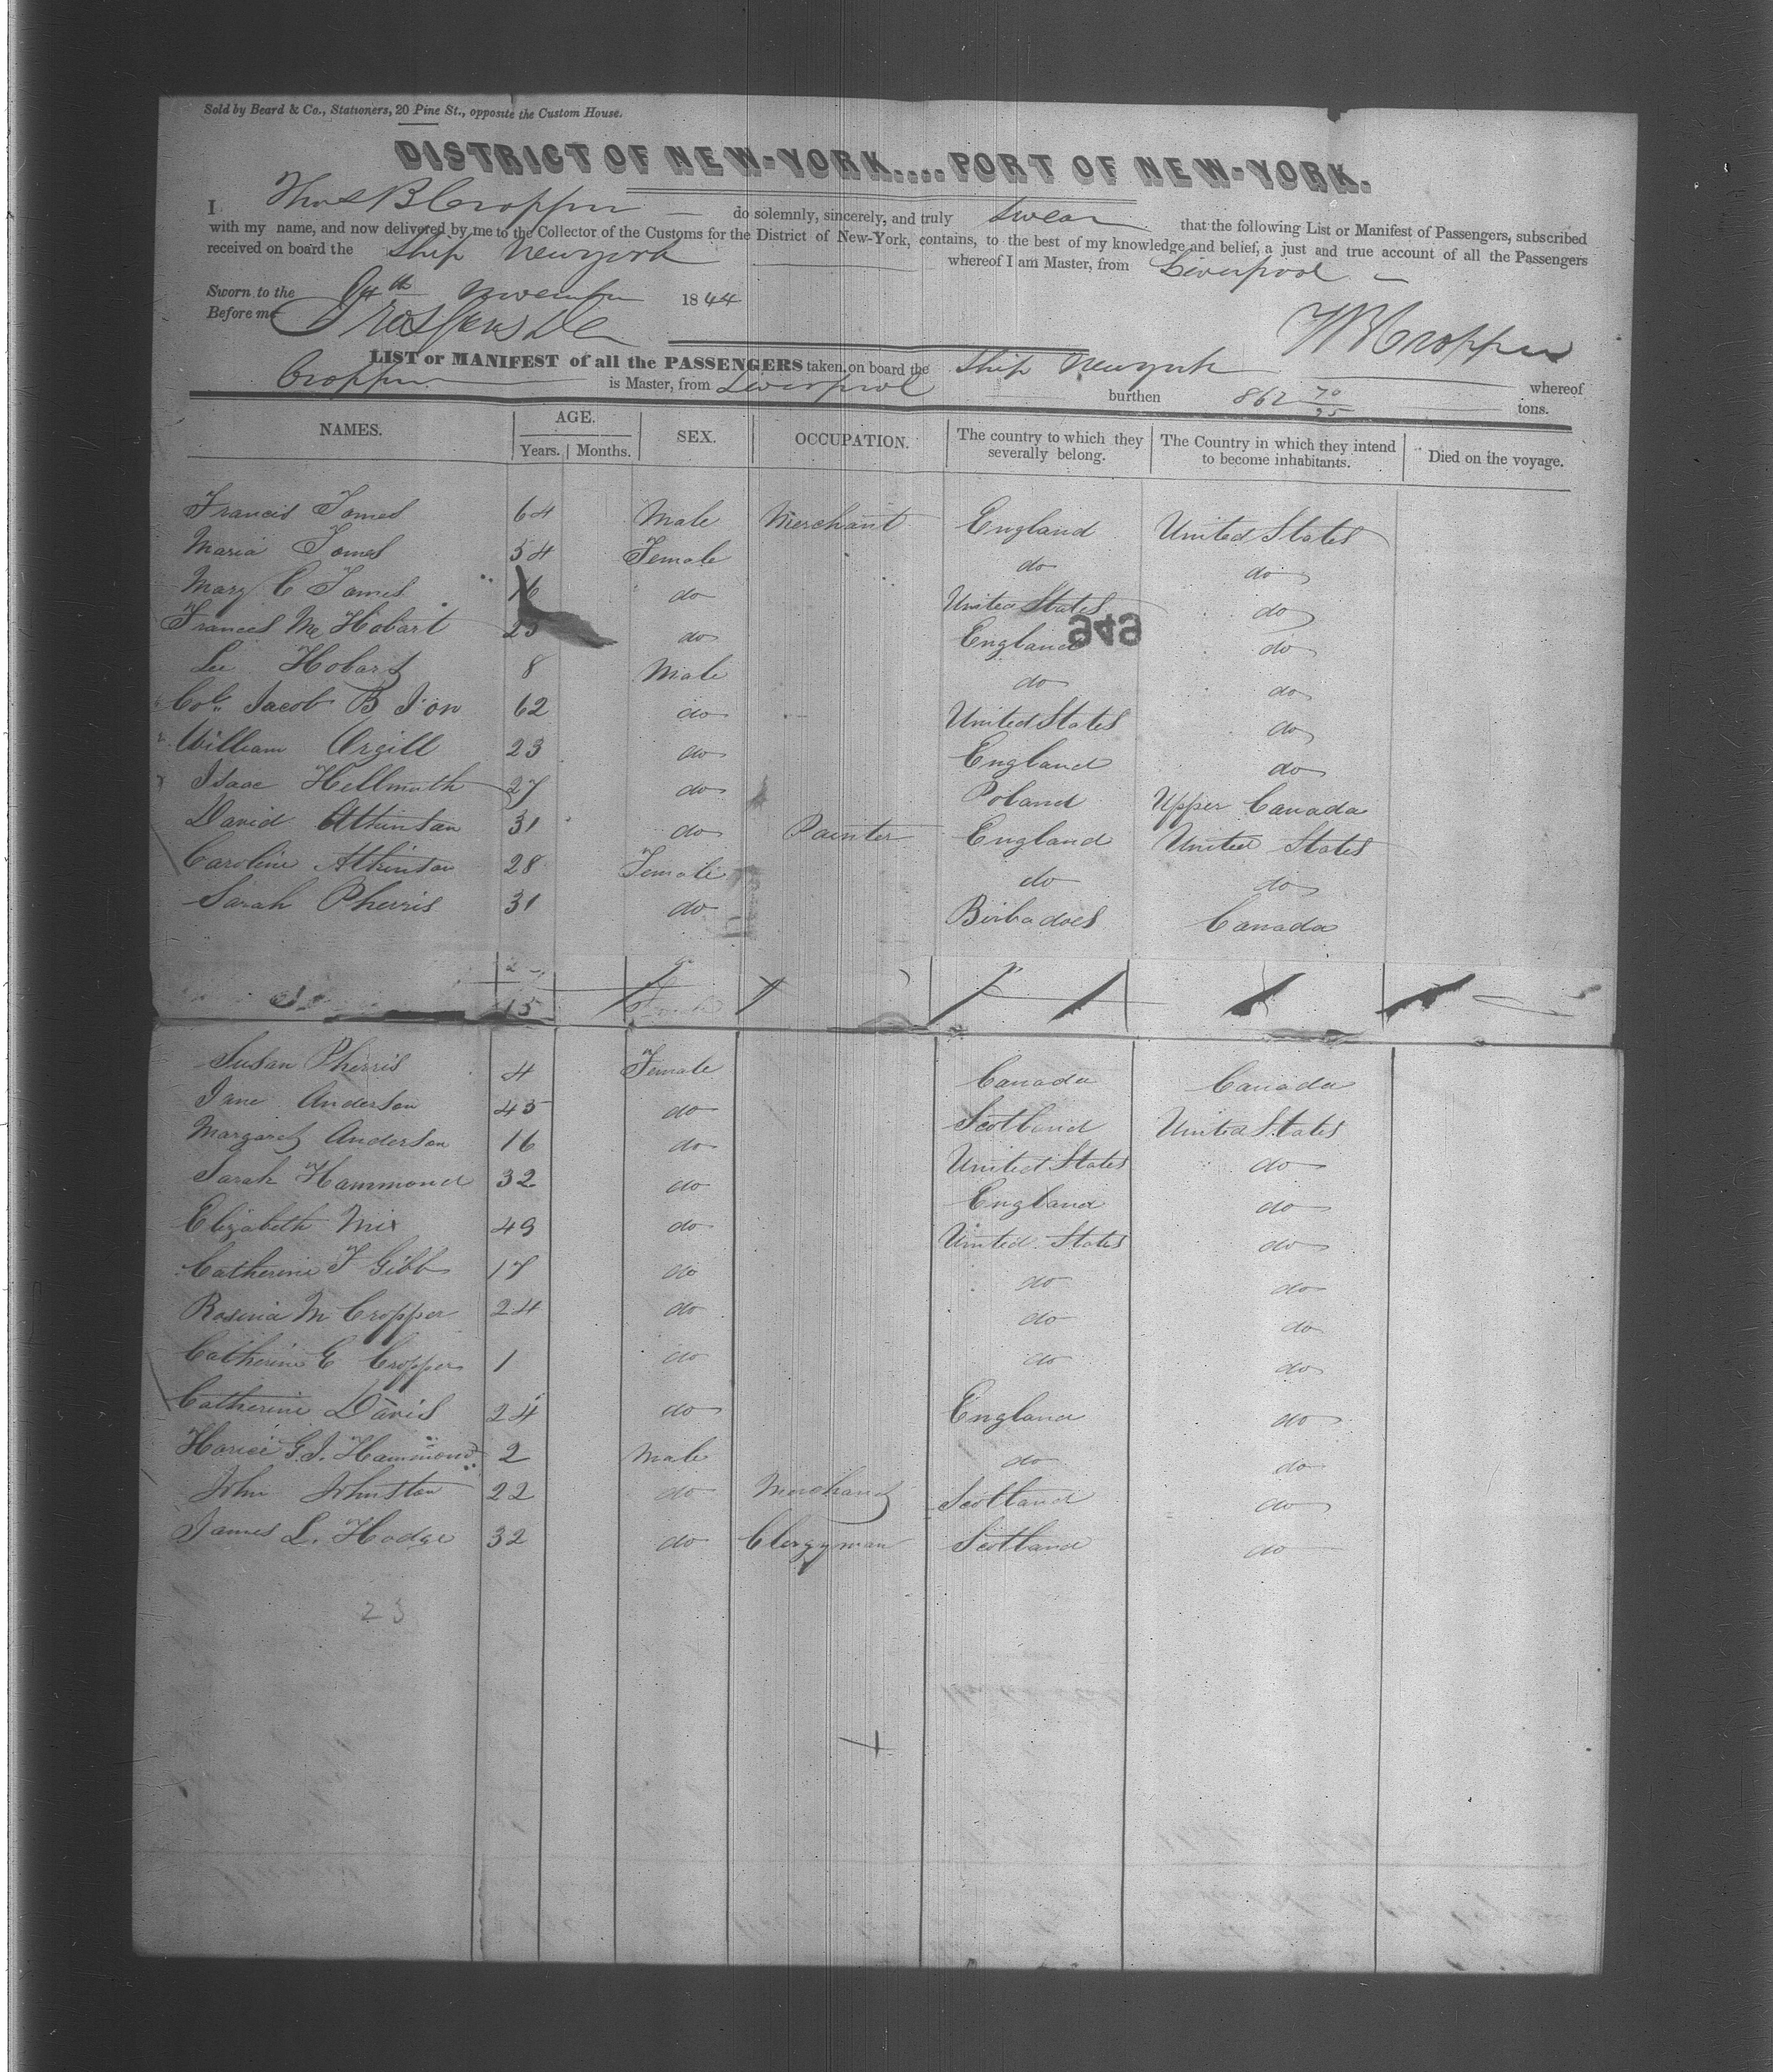 Sold by Beard & Co., Stationers, 20 Pine St., opposite the Custom House.
DISTRICT OF NEW-YORK....PORT OF NEW-YORK.
I Thos B Cropper do solemnly, sincerely, and truly swear that the following List or Manifest of Passengers, subscribed
with my name, and now delivered by me to the Collector of the Customs for the District of New-York, contains, to the best of my knowledge and belief, a just and true account of all the Passengers
received on board the Ship Newyork whereof I am Master, from Liverpool
Sworn to the November 1844
Before me
Cropper
LIST or MANIFEST of all the PASSENGERS taken on board the Ship Newyork whereof
Cropper is Master, from Liverpool burthen 862 70/95 tons.
NAMES. AGE. SEX. OCCUPATION. The country to which they severally belong. The Country in which they intend to become inhabitants. Died on the voyage.
Years. Months.
Francis Tomes 64 Male Merchant England United States
Maria Tomes 54 Female do do
Mary C Tomes 16 do United States do
949
Frances Hobart 25 do England do
Hobart 8 Male do do
Col. Jacob B I'on 62 do United States do
William Orgill 23 do England do
Isaac Hellmuth 27 do Poland Upper Canada
David Atkinson 31 do Painter England United States
Caroline Atkinson 28 Female do do
Sarah Pherris 31 do Barbadoes Canada
15
Susan Pherris 4 Female Canada Canada
Jane Anderson 45 do Scotland United States
Margaret Anderson 16 do United States do
Sarah Hammond 32 do England do
Elizabeth Mix 49 do United States do
Catherine F Gibb 17 do do do
Rosina M Cropper 24 do do do
Catherine E Cropper 1 do do do
Catherine Davis 24 do England do
G. J. Hammond 2 Male do do
John Johnston 22 do Merchant Scotland do
James L. Hodge 32 do Clergyman Scotland do
23